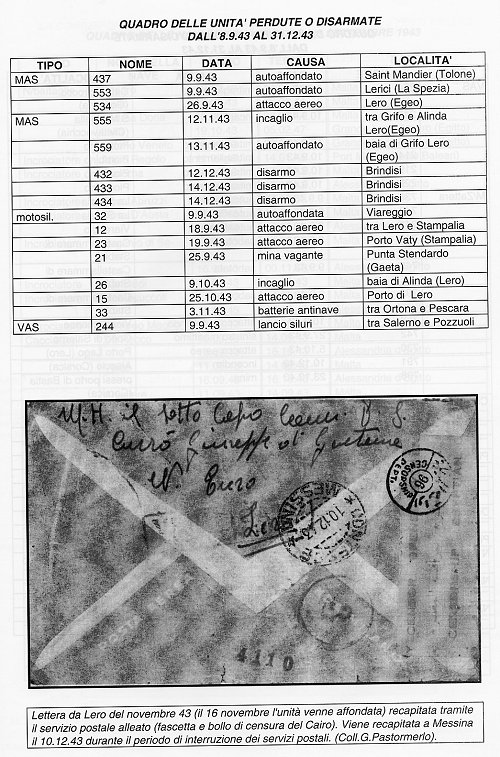 QUADRO DELLE UNITA' PERDUTE O DISARMATE
DALL'8.9.43 AL 31.12.43
TIPO NOME DATA CAUSA LOCALITA'
MAS 437 9.9.43 autoaffondato Saint Mandier (Tolone)
553 9.9.43 autoaffondato Lerici (La Spezia)
534 26.9.43 attacco aereo Lero (Egeo)
MAS 555 12.11.43 incaglio tra Grifo e Alinda
Lero(Egeo)
559 13.11.43 autoaffondato baia di Grifo Lero
(Egeo)
432 12.12.43 disarmo Brindisi
433 14.12.43 disarmo Brindisi
434 14.12.43 disarmo Brindisi
motosil. 32 9.9.43 autoaffondata Viareggio
12 18.9.43 attacco aereo tra Lero e Stampalia
23 19.9.43 attacco aereo Porto Vaty (Stampalia)
21 25.9.43 mina vagante Punta Stendardo
(Gaeta)
26 9.10.43 incaglio baia di Alinda (Lero)
15 25.10.43 attacco aereo Porto di Lero
33 3.11.43 batterie antinave tra Ortona e Pescara
VAS 244 9.9.43 lancio siluri tra Salerno e Pozzuoli
Capo
Giuseppe di
Euro
MESSINA
10.12.43
CENSORSHIP
DEPT.
96
4110
Lettera da Lero del novembre 43 (il 16 novembre l'unità venne affondata) recapitata tramite
il servizio postale alleato (fascetta e bollo di censura del Cairo). Viene recapitata a Messina
il 10.12.43 durante il periodo di interruzione dei servizi postali. (Coll.G.Pastormerlo).